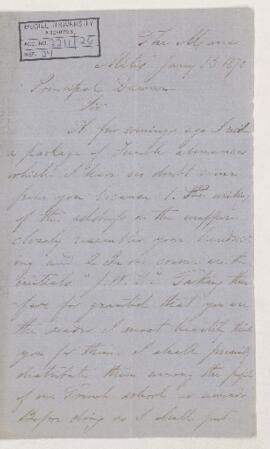 McGILL UNIVERSITY
ARCHIVES
ACC. NO. 2211/26
REF. 34
The Manse
Metis Jany 13. 1870
Principal Dawson
Sir
A few evenings ago I recd
a package of French almanacs
which I have no doubt came
from you because 1. The writing
of the address on the wrapper
closely resembles your handwri-
ting and 2. In one corner are the
initials "J.W.D." Taking there-
fore for granted that you are
the sender I most heartily thank
you for them. I shall
distribute them among the pupils
of our French school as
Before doing so I shall put